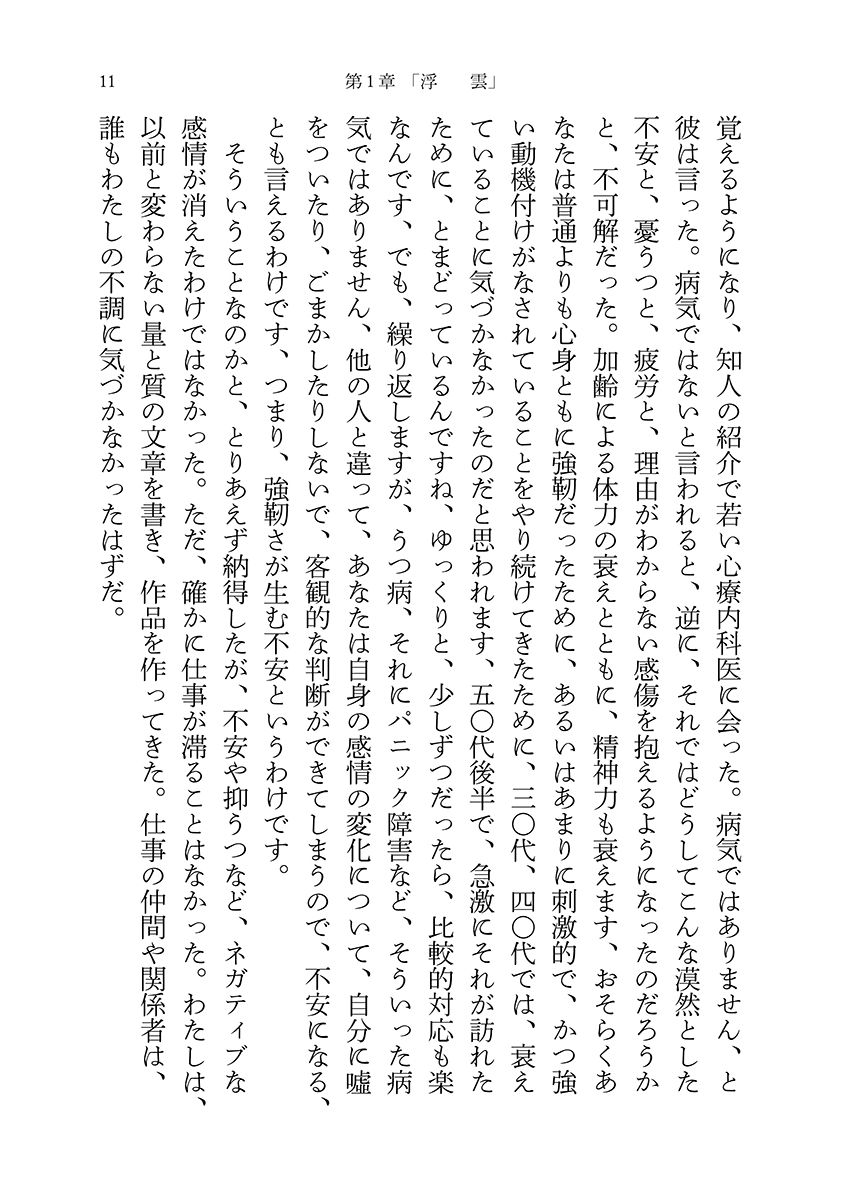 11
第1章 「浮　雲」
覚えるようになり、知人の紹介で若い心療内科医に会った。病気ではありません、と
彼は言った。病気ではないと言われると、逆に、それではどうしてこんな漠然とした
不安と、憂うつと、疲労と、理由がわからない感傷を抱えるようになったのだろうか
と、不可解だった。加齢による体力の衰えとともに、精神力も衰えます、おそらくあ
なたは普通よりも心身ともに強靭だったために、あるいはあまりに刺激的で、かつ強
い動機付けがなされていることをやり続けてきたために、三〇代、四〇代では、衰え
ていることに気づかなかったのだと思われます、五〇代後半で、急激にそれが訪れた
ために、とまどっているんですね、ゆっくりと、少しずつだったら、比較的対応も楽
なんです、でも、繰り返しますが、うつ病、それにパニック障害など、そういった病
気ではありません、他の人と違って、あなたは自身の感情の変化について、自分に嘘
をついたり、ごまかしたりしないで、客観的な判断ができてしまうので、不安になる、
とも言えるわけです、つまり、強靭さが生む不安というわけです。
そういうことなのかと、とりあえず納得したが、不安や抑うつなど、ネガティブな
感情が消えたわけではなかった。ただ、確かに仕事が滞ることはなかった。わたしは、
以前と変わらない量と質の文章を書き、作品を作ってきた。仕事の仲間や関係者は、
誰もわたしの不調に気づかなかったはずだ。